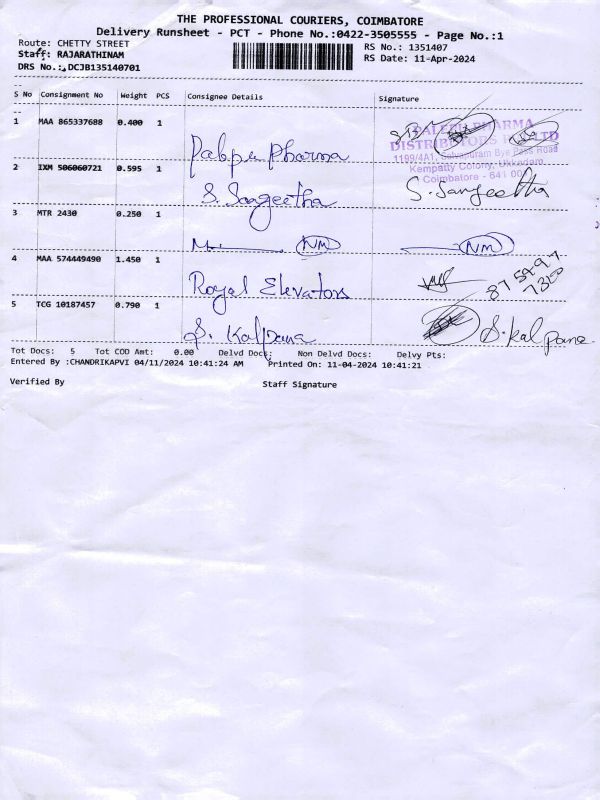 THE PROFESSIONAL COURIERS, COIMBATORE
Delivery Runsheet - PCT - Phone No.:0422-3505555 - Page No.:1
Route: CHETTY STREET
RS No.: 1351407
Staff: RAJARATHINAM
RS Date: 11-Apr-2024
DRS No.: DCJB135140701
S No Consignment No Weight PCS Consignee Details Signature
1 MAA 865337688 0.400 1
Pharma
PHARMA
DISTRIBUTORS LTD
1199/4A1, Selvapuram Bye Pass Road
Kempatty Colony, Ukkadam
Coimbatore - 641 001
2 IXM 506060721 0.595 1
S. Sangeetha S. Sangeetha
3 MTR 2430 0.250 1
NM NM
4 MAA 574449490 1.450 1
Royal Elevators
5 TCG 10187457 0.790 1
S. Kalpana S. Kalpana
Tot Docs: 5 Tot COD Amt: 0.00 Delvd Doct: Non Delvd Docs: Delvy Pts:
Entered By :CHANDRIKAPVI 04/11/2024 10:41:24 AM Printed On: 11-04-2024 10:41:21
Verified By Staff Signature